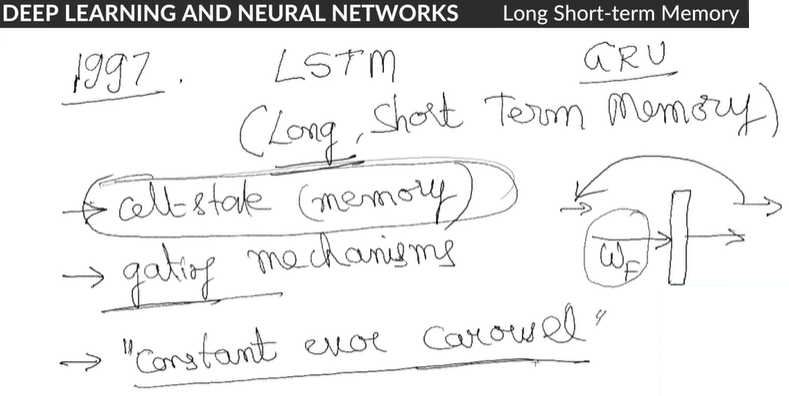 DEEP LEARNING AND NEURAL NETWORKS Long Short-term Memory
1997. LSTM GRU
(Long, Short Term Memory)
→ cell-state (memory)
→ gating mechanisms
W_F
→ "Constant error carousel"